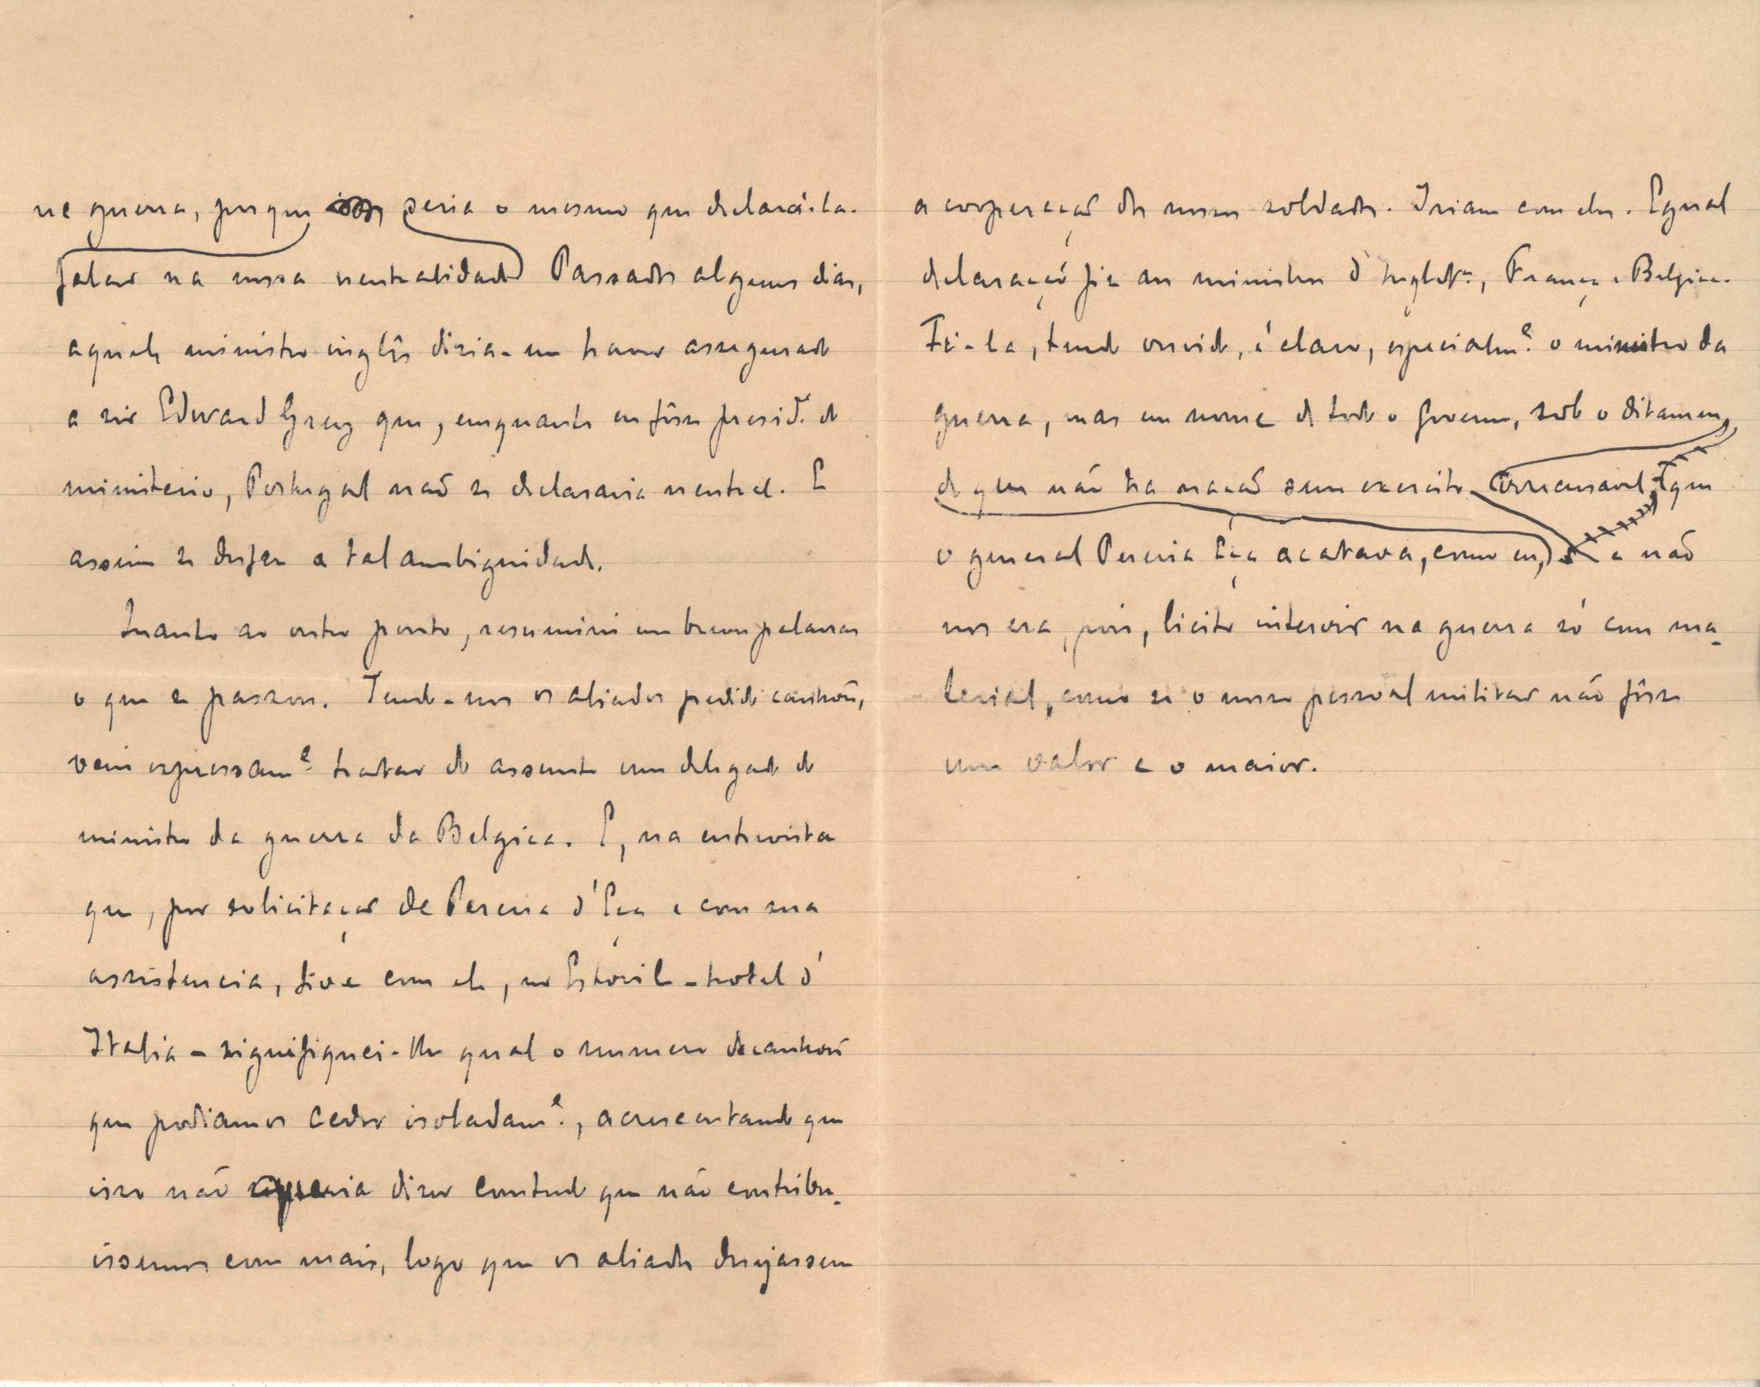 na guerra, porque seria o mesmo que declará-la.
falar na nossa neutralidade Passados alguns dias,
aquele ministro inglês dizia-me haver assegurado
a sir Edward Grey que, emquanto eu fôsse presid.e do
ministerio, Portugal não se declararia neutral. E
assim se desfez a tal ambiguidade.
Quanto ao outro ponto, resumirei em breves palavras
o que se passou. Tendo-nos os aliados pedido canhões,
veiu expressam.e tratar do assunto um delegado do
ministro da guerra da Belgica. E, na entrevista
que, por solicitação de Pereira d'Eça e com sua
assistencia, tive com ele, no Estoril - hotel d'
Italia - signifiquei-lhe qual o numero de canhões
que podiamos ceder isoladam.e, acrescentando que
isso não queria dizer comtudo que não contribu-
issemos com mais, logo que os aliados desejassem
a cooperação dos nossos soldados. Iriam com eles. Egual
declaração fiz aos ministros d'Inglat.ra, França e Belgica.
Fi-la, tendo ouvido, é claro, especialm.e o ministro da
guerra, mas em nome de todo o governo, sob o ditamen,
de que não ha nação sem exercito irrecusavel, que
o general Pereira Eça acatava, como eu, e não
nos era, pois, licito intervir na guerra só com ma-
terial, como se o nosso pessoal militar não fôsse
um valor e o maior.